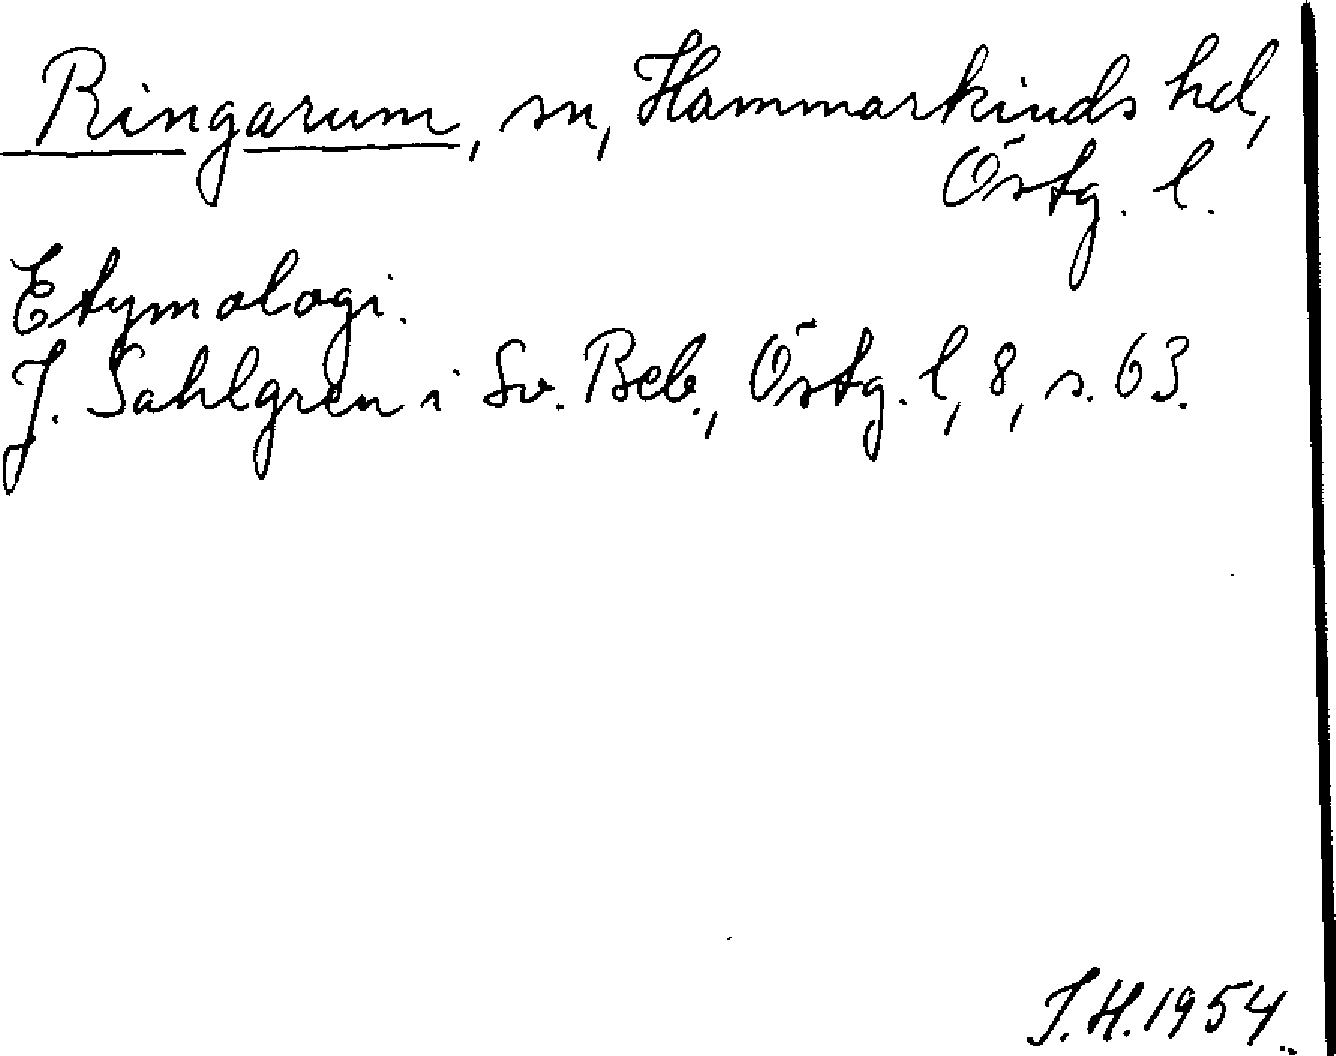 Ringarum, sn, Hammarkinds hd,
Östg. l.
Etymologi.
J. Sahlgren i Sv. Beb., Östg. l, 8, s. 63.
J.H. 1954.